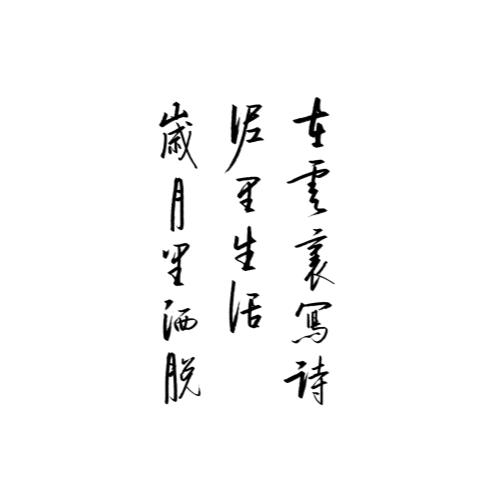 在雲裏寫詩
泥里生活
歲月里洒脫